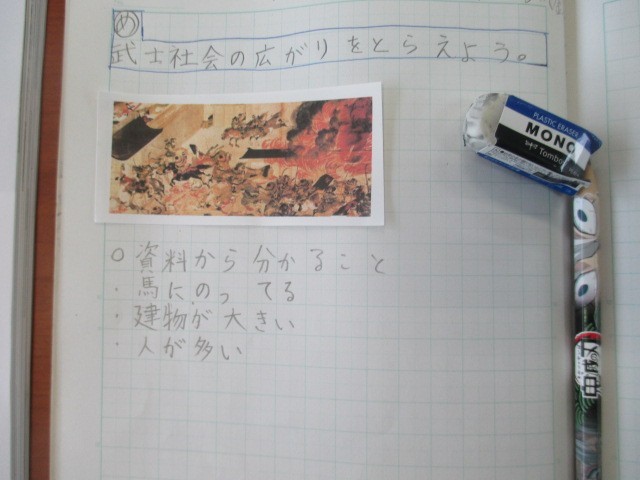 め
武士社会の広がりをとらえよう。
○資料から分かること
・馬にのってる
・建物が大きい
・人が多い
PLASTIC ERASER
MONO
Tombow